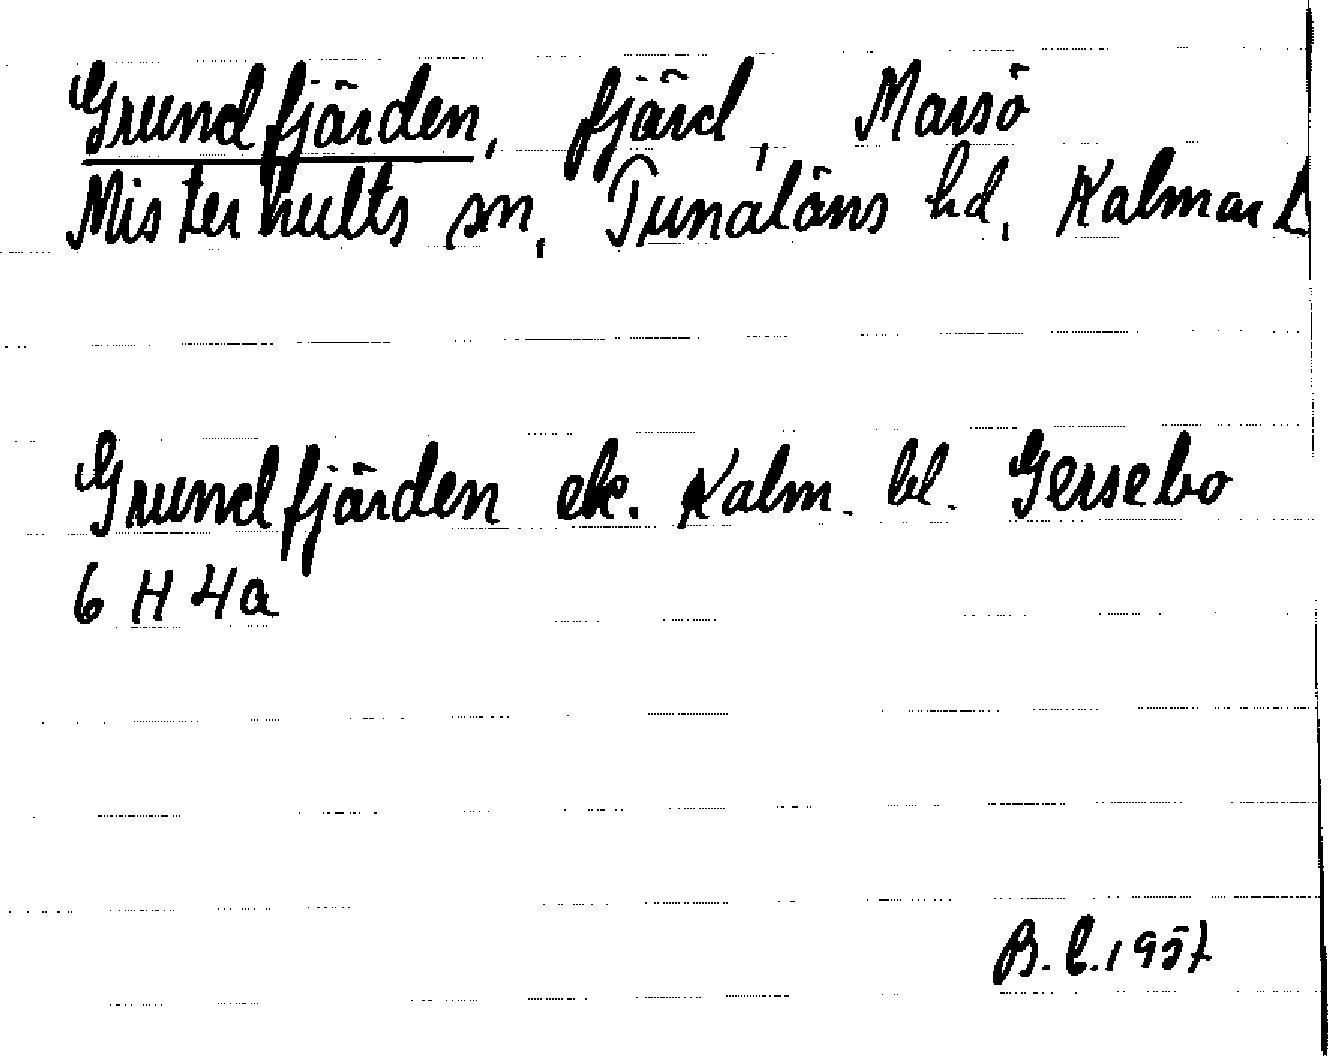 Grundfjärden, fjärd, Marsö
Misterhults sn, Tunaläns hd, Kalmar L
Grundfjärden ek. Kalm. bl. Gersebo
6 H 4a
B.L. 1957